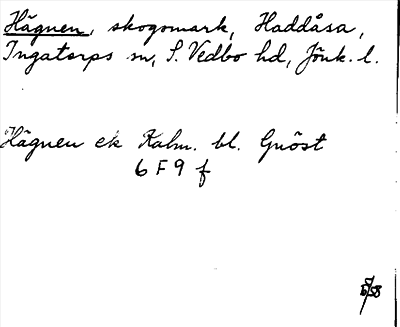 Hägnen, skogsmark, Haddåsa,
Ingatorps sn, S. Vedbo hd, Jönk. l.
Hägnen ek Kalm. bl. Gnöst
6 F 9 f